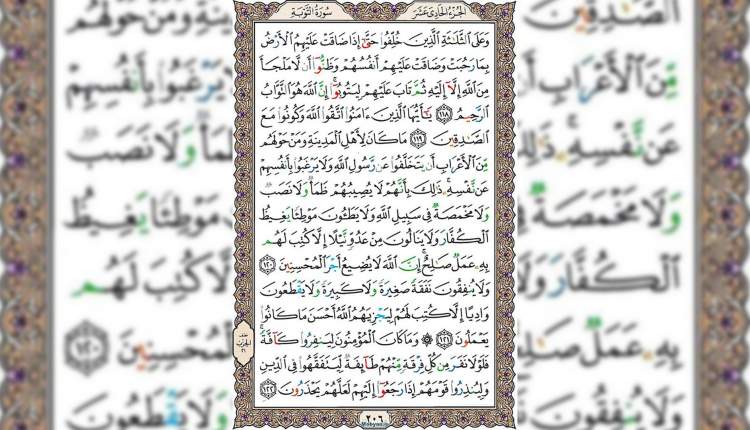 الجزء الحادي عشر
سورة التوبة
وَعَلَى الثَّلَاثَةِ الَّذِينَ خُلِّفُوا حَتَّىٰ إِذَا ضَاقَتْ عَلَيْهِمُ الْأَرْضُ
بِمَا رَحُبَتْ وَضَاقَتْ عَلَيْهِمْ أَنفُسُهُمْ وَظَنُّوا أَن لَّا مَلْجَأَ
مِنَ اللَّهِ إِلَّا إِلَيْهِ ثُمَّ تَابَ عَلَيْهِمْ لِيَتُوبُوا إِنَّ اللَّهَ هُوَ التَّوَّابُ
الرَّحِيمُ ١١٨ يَا أَيُّهَا الَّذِينَ ءَامَنُوا اتَّقُوا اللَّهَ وَكُونُوا مَعَ
الصَّادِقِينَ ١١٩ مَا كَانَ لِأَهْلِ الْمَدِينَةِ وَمَنْ حَوْلَهُم
مِّنَ الْأَعْرَابِ أَن يَتَخَلَّفُوا عَن رَّسُولِ اللَّهِ وَلَا يَرْغَبُوا بِأَنفُسِهِمْ
عَن نَّفْسِهِ ذَٰلِكَ بِأَنَّهُمْ لَا يُصِيبُهُمْ ظَمَأٌ وَلَا نَصَبٌ
وَلَا مَخْمَصَةٌ فِي سَبِيلِ اللَّهِ وَلَا يَطَئُونَ مَوْطِئًا يَغِيظُ
الْكُفَّارَ وَلَا يَنَالُونَ مِنْ عَدُوٍّ نَّيْلًا إِلَّا كُتِبَ لَهُم
بِهِ عَمَلٌ صَالِحٌ إِنَّ اللَّهَ لَا يُضِيعُ أَجْرَ الْمُحْسِنِينَ ١٢٠
وَلَا يُنفِقُونَ نَفَقَةً صَغِيرَةً وَلَا كَبِيرَةً وَلَا يَقْطَعُونَ
وَادِيًا إِلَّا كُتِبَ لَهُمْ لِيَجْزِيَهُمُ اللَّهُ أَحْسَنَ مَا كَانُوا
يَعْمَلُونَ ١٢١ ۞ وَمَا كَانَ الْمُؤْمِنُونَ لِيَنفِرُوا كَافَّةً
فَلَوْلَا نَفَرَ مِن كُلِّ فِرْقَةٍ مِّنْهُمْ طَائِفَةٌ لِّيَتَفَقَّهُوا فِي الدِّينِ
وَلِيُنذِرُوا قَوْمَهُمْ إِذَا رَجَعُوا إِلَيْهِمْ لَعَلَّهُمْ يَحْذَرُونَ ١٢٢
نصف
الحزب
٢١
٢٠٦